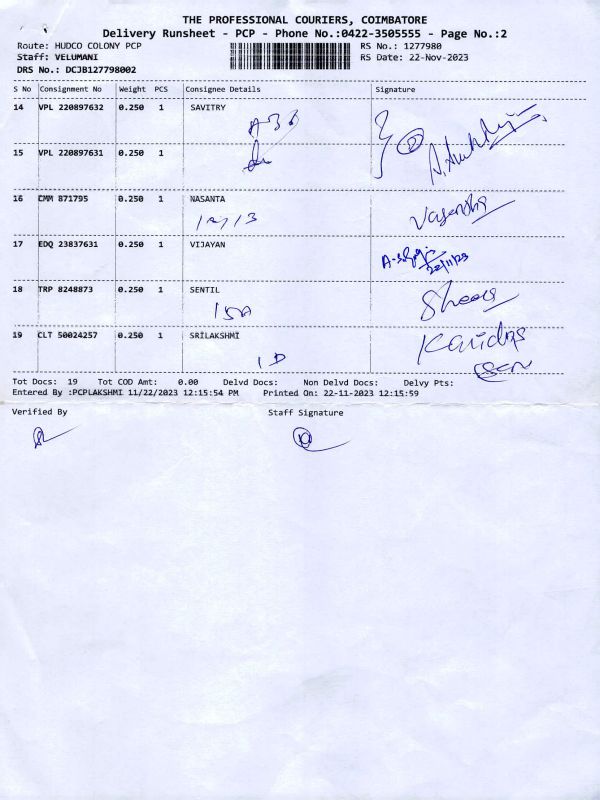 THE PROFESSIONAL COURIERS, COIMBATORE
Delivery Runsheet - PCP - Phone No.:0422-3505555 - Page No.:2
Route: HUDCO COLONY PCP RS No.: 1277980
Staff: VELUMANI RS Date: 22-Nov-2023
DRS No.: DCJB127798002
S No Consignment No Weight PCS Consignee Details Signature
14 VPL 220897632 0.250 1 SAVITRY
15 VPL 220897631 0.250 1
16 CMM 871795 0.250 1 NASANTA
17 EDQ 23837631 0.250 1 VIJAYAN
22/11/23
18 TRP 8248873 0.250 1 SENTIL
19 CLT 50024257 0.250 1 SRILAKSHMI
Tot Docs: 19 Tot COD Amt: 0.00 Delvd Docs: Non Delvd Docs: Delvy Pts:
Entered By :PCPLAKSHMI 11/22/2023 12:15:54 PM Printed On: 22-11-2023 12:15:59
Verified By Staff Signature